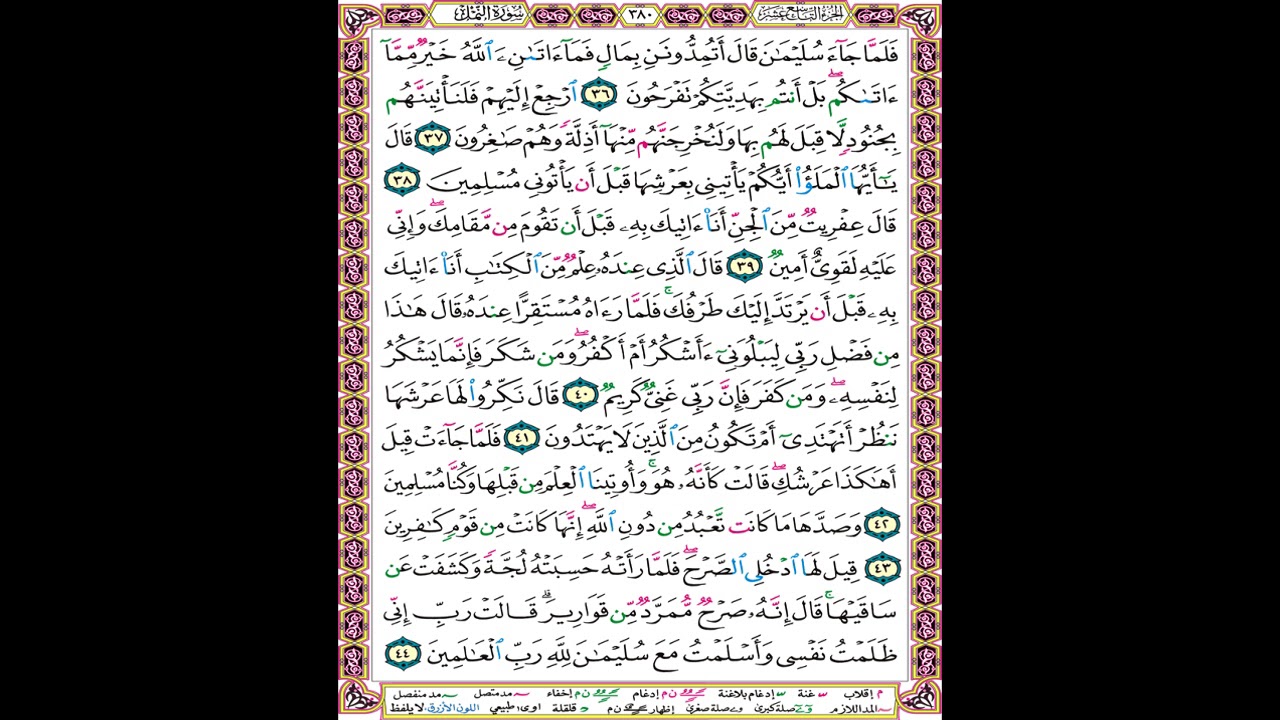 سورة النمل ٣٨٠ الجزء التاسع عشر
فَلَمَّا جَآءَ سُلَيْمَـٰنَ قَالَ أَتُمِدُّونَنِ بِمَالٍ فَمَآ ءَاتَىٰنِۦَ ٱللَّهُ خَيْرٌ مِّمَّآ
ءَاتَىٰكُمۖ بَلْ أَنتُم بِهَدِيَّتِكُمْ تَفْرَحُونَ ٣٦ ٱرْجِعْ إِلَيْهِمْ فَلَنَأْتِيَنَّهُم
بِجُنُودٍ لَّا قِبَلَ لَهُم بِهَا وَلَنُخْرِجَنَّهُم مِّنْهَآ أَذِلَّةً وَهُمْ صَـٰغِرُونَ ٣٧ قَالَ
يَـٰٓأَيُّهَا ٱلْمَلَؤُا۟ أَيُّكُمْ يَأْتِينِى بِعَرْشِهَا قَبْلَ أَن يَأْتُونِى مُسْلِمِينَ ٣٨
قَالَ عِفْرِيتٌ مِّنَ ٱلْجِنِّ أَنَا۠ ءَاتِيكَ بِهِۦ قَبْلَ أَن تَقُومَ مِن مَّقَامِكَۖ وَإِنِّى
عَلَيْهِ لَقَوِىٌّ أَمِينٌ ٣٩ قَالَ ٱلَّذِى عِندَهُۥ عِلْمٌ مِّنَ ٱلْكِتَـٰبِ أَنَا۠ ءَاتِيكَ
بِهِۦ قَبْلَ أَن يَرْتَدَّ إِلَيْكَ طَرْفُكَۚ فَلَمَّا رَءَاهُ مُسْتَقِرًّا عِندَهُۥ قَالَ هَـٰذَا
مِن فَضْلِ رَبِّى لِيَبْلُوَنِىٓ ءَأَشْكُرُ أَمْ أَكْفُرُۖ وَمَن شَكَرَ فَإِنَّمَا يَشْكُرُ
لِنَفْسِهِۦۖ وَمَن كَفَرَ فَإِنَّ رَبِّى غَنِىٌّ كَرِيمٌ ٤٠ قَالَ نَكِّرُوا۟ لَهَا عَرْشَهَا
نَنظُرْ أَتَهْتَدِىٓ أَمْ تَكُونُ مِنَ ٱلَّذِينَ لَا يَهْتَدُونَ ٤١ فَلَمَّا جَآءَتْ قِيلَ
أَهَـٰكَذَا عَرْشُكِۖ قَالَتْ كَأَنَّهُۥ هُوَۚ وَأُوتِينَا ٱلْعِلْمَ مِن قَبْلِهَا وَكُنَّا مُسْلِمِينَ
٤٢ وَصَدَّهَا مَا كَانَت تَّعْبُدُ مِن دُونِ ٱللَّهِۖ إِنَّهَا كَانَتْ مِن قَوْمٍ كَـٰفِرِينَ
٤٣ قِيلَ لَهَا ٱدْخُلِى ٱلصَّرْحَۖ فَلَمَّا رَأَتْهُ حَسِبَتْهُ لُجَّةً وَكَشَفَتْ عَن
سَاقَيْهَاۚ قَالَ إِنَّهُۥ صَرْحٌ مُّمَرَّدٌ مِّن قَوَارِيرَۗ قَالَتْ رَبِّ إِنِّى
ظَلَمْتُ نَفْسِى وَأَسْلَمْتُ مَعَ سُلَيْمَـٰنَ لِلَّهِ رَبِّ ٱلْعَـٰلَمِينَ ٤٤
م إقلاب غنة إدغام بلاغنة ن م إدغام ن م إخفاء مد متصل مد منفصل
المد اللازم صلة كبرى صلة صغرى إظهار ن م قلقلة اوى: طبيعي اللون الأزرق: لا يلفظ